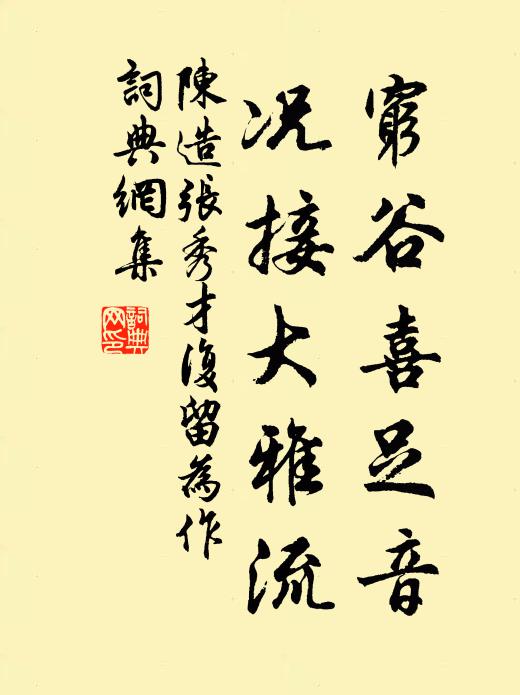 窮谷喜足音
况接大雅流
陳造張秀才復留為作
詞典網集
詞典网印